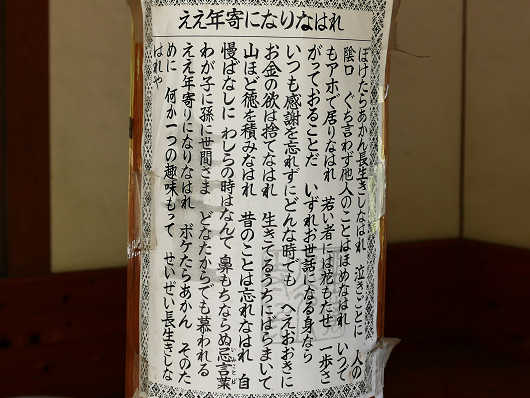 ええ年寄になりなはれ
ぼけたらあかん長生きしなはれ　泣きごとに　人の
陰口　ぐち言わず他人のことはほめなはれ　いつで
もアホで居りなはれ　若い者には花もたせ　一歩さ
がっておることだ　いずれお世話になる身なら
いつも感謝を忘れずにどんな時でも　へえおおきに
お金の欲は捨てなはれ　生きてるうちにばらまいて
山ほど徳を積みなはれ　昔のことは忘れなはれ　自
慢ばなしに　わしらの時はなんて　鼻もちならぬ忌言葉
わが子に孫に世間さま　どなたからでも慕われる
ええ年寄りになりなはれ　ボケたらあかん　そのた
めに　何か一つの趣味もって　せいぜい長生きしな
はれや